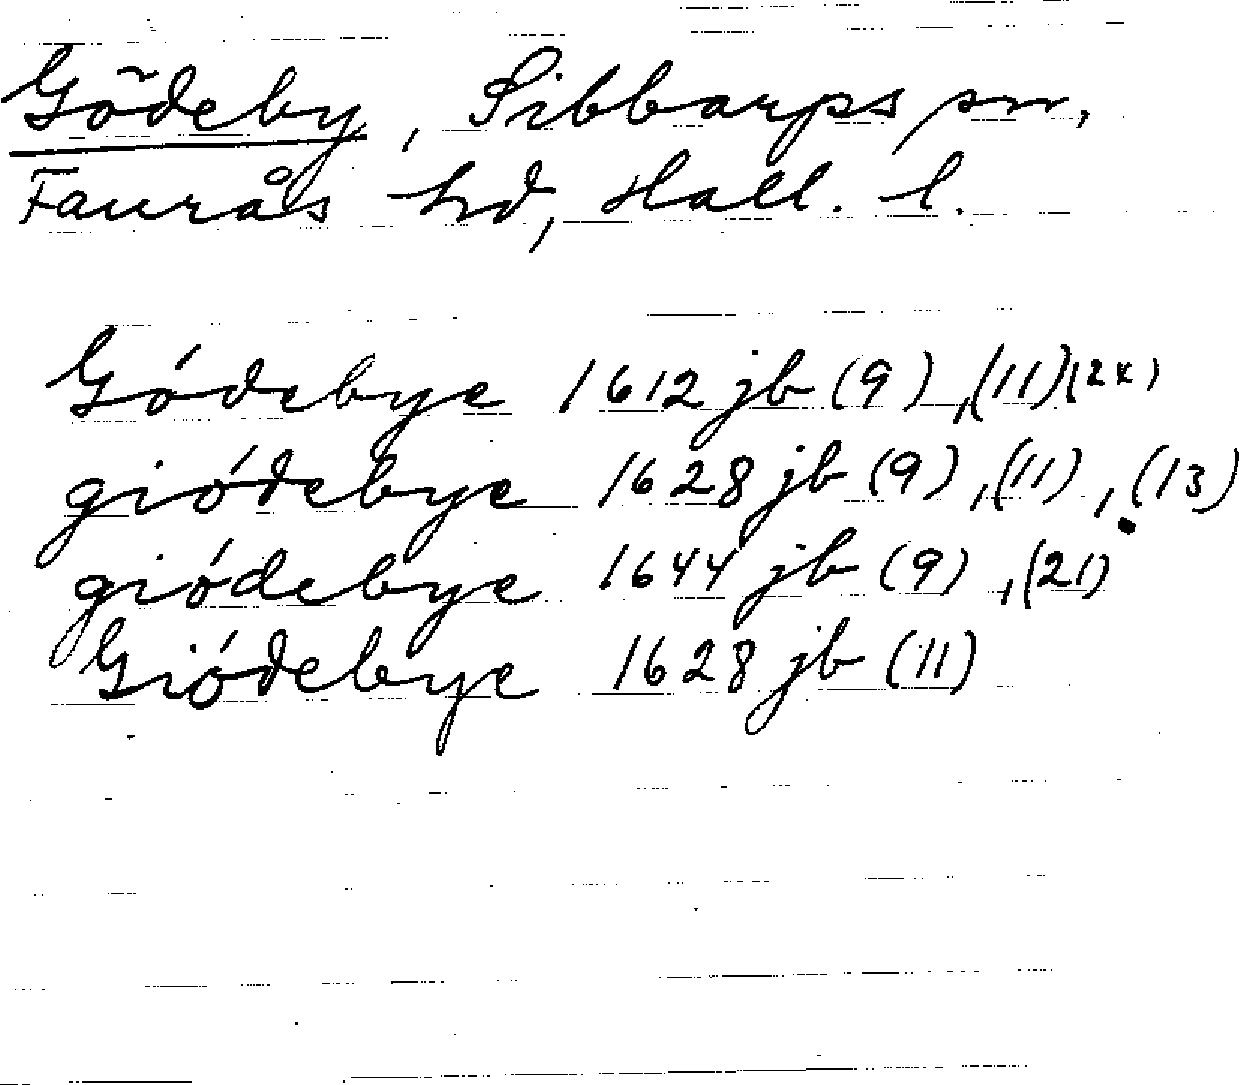 Gödeby, Sibbarps sn,
Faurås hd, Hall. l.
Gódebye 1612 jb (9), (11) (2x)
giódebye 1628 jb (9), (11), (13)
giódebye 1644 jb (9), (21)
Giódebye 1628 jb (11)